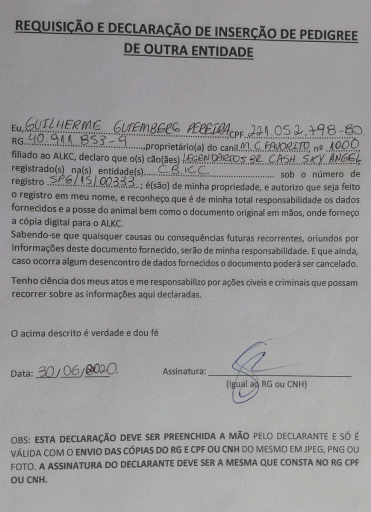 REQUISIÇÃO E DECLARAÇÃO DE INSERÇÃO DE PEDIGREE
DE OUTRA ENTIDADE
Eu, GUILHERME GUTEMBERG PEREIRA, CPF 221 052 798-80
RG 40 911 853-9, proprietário(a) do canil M.C FAVORITO, nº 1000
filiado ao ALKC, declaro que o(s) cão(ães) LEGENDARIOS BR CASH SKY ANGEL
registrado(s) na(s) entidade(s) CBKC sob o número de
registro SPG/15/00333; é(são) de minha propriedade, e autorizo que seja feito
o registro em meu nome, e reconheço que é de minha total responsabilidade os dados
fornecidos e a posse do animal bem como o documento original em mãos, onde forneço
a cópia digital para o ALKC.
Sabendo-se que quaisquer causas ou consequências futuras recorrentes, oriundos por
informações deste documento fornecido, serão de minha responsabilidade. E que ainda,
caso ocorra algum desencontro de dados fornecidos o documento poderá ser cancelado.
Tenho ciência dos meus atos e me responsabilizo por ações cíveis e criminais que possam
recorrer sobre as informações aqui declaradas.
O acima descrito é verdade e dou fé
Data: 30/06/2020. Assinatura:
(Igual ao RG ou CNH)
OBS: ESTA DECLARAÇÃO DEVE SER PREENCHIDA A MÃO PELO DECLARANTE E SÓ É
VÁLIDA COM O ENVIO DAS CÓPIAS DO RG E CPF OU CNH DO MESMO EM JPEG, PNG OU
FOTO. A ASSINATURA DO DECLARANTE DEVE SER A MESMA QUE CONSTA NO RG CPF
OU CNH.